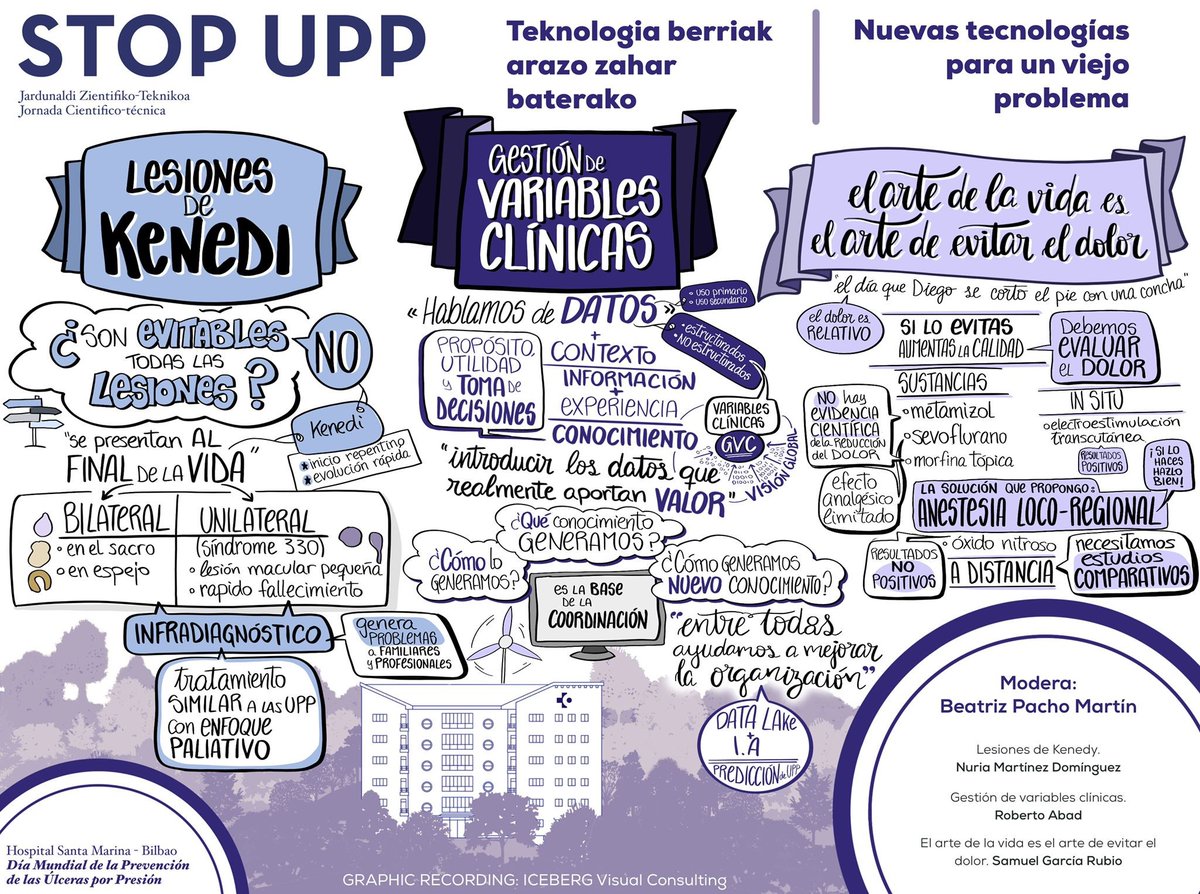 STOP UPP
Jardunaldi Zientifiko-Teknikoa
Jornada Cientifico-técnica
Teknologia berriak
arazo zahar
baterako
Nuevas tecnologías
para un viejo
problema
LESIONES
DE
KENEDI
¿SON EVITABLES
TODAS LAS
LESIONES?
NO
Kenedi
*inicio repentino
*evolución rápida
"se presentan AL
FINAL DE LA VIDA"
BILATERAL
• en el sacro
• en espejo
UNILATERAL
(síndrome 330)
• lesión macular pequeña
• rapido fallecimiento
INFRADIAGNÓSTICO
genera
PROBLEMAS
A FAMILIARES
Y PROFESIONALES
tratamiento
SIMILAR A LAS UPP
CON ENFOQUE
PALIATIVO
GESTIÓN DE
VARIABLES
CLÍNICAS
«Hablamos de DATOS»
• USO PRIMARIO
• USO SECUNDARIO
• ESTRUCTURADOS
• NO ESTRUCTURADOS
PROPÓSITO,
UTILIDAD
Y TOMA DE
DECISIONES
+
CONTEXTO
INFORMACIÓN
+
EXPERIENCIA
CONOCIMIENTO
VARIABLES
CLÍNICAS
GVC
VISIÓN GLOBAL
"introducir los datos que
realmente aportan VALOR"
¿Qué conocimiento
GENERAMOS?
¿Cómo lo
GENERAMOS?
¿CÓMO GENERAMOS
NUEVO CONOCIMIENTO?
ES LA BASE
DE LA
COORDINACIÓN
"entre todas
ayudamos a mejorar
la organización"
DATA LAKE
+
I.A
PREDICCIÓN DE UPP
el arte de la vida es
el arte de evitar el dolor
"el día que Diego se corto el pie con una concha"
el dolor es
RELATIVO
SI LO EVITAS
AUMENTAS LA CALIDAD
Debemos
EVALUAR
EL DOLOR
SUSTANCIAS
• metamizol
• sevoflurano
• morfina tópica
IN SITU
• electroestimulación
transcutánea
RESULTADOS
POSITIVOS
NO hay
EVIDENCIA
CIENTÍFICA
de la REDUCCIÓN
DEL DOLOR
efecto
analgésico
limitado
¡SI LO
HACES
HAZLO
BIEN!
LA SOLUCIÓN QUE PROPONGO:
ANESTESIA LOCO-REGIONAL
RESULTADOS
NO
POSITIVOS
• óxido nitroso
A DISTANCIA
necesitamos
estudios
COMPARATIVOS
Modera:
Beatriz Pacho Martín
Lesiones de Kenedy.
Nuria Martínez Domínguez
Gestión de variables clínicas.
Roberto Abad
El arte de la vida es el arte de evitar el
dolor. Samuel García Rubio
Hospital Santa Marina - Bilbao
Día Mundial de la Prevención
de las Úlceras por Presión
GRAPHIC RECORDING: ICEBERG Visual Consulting